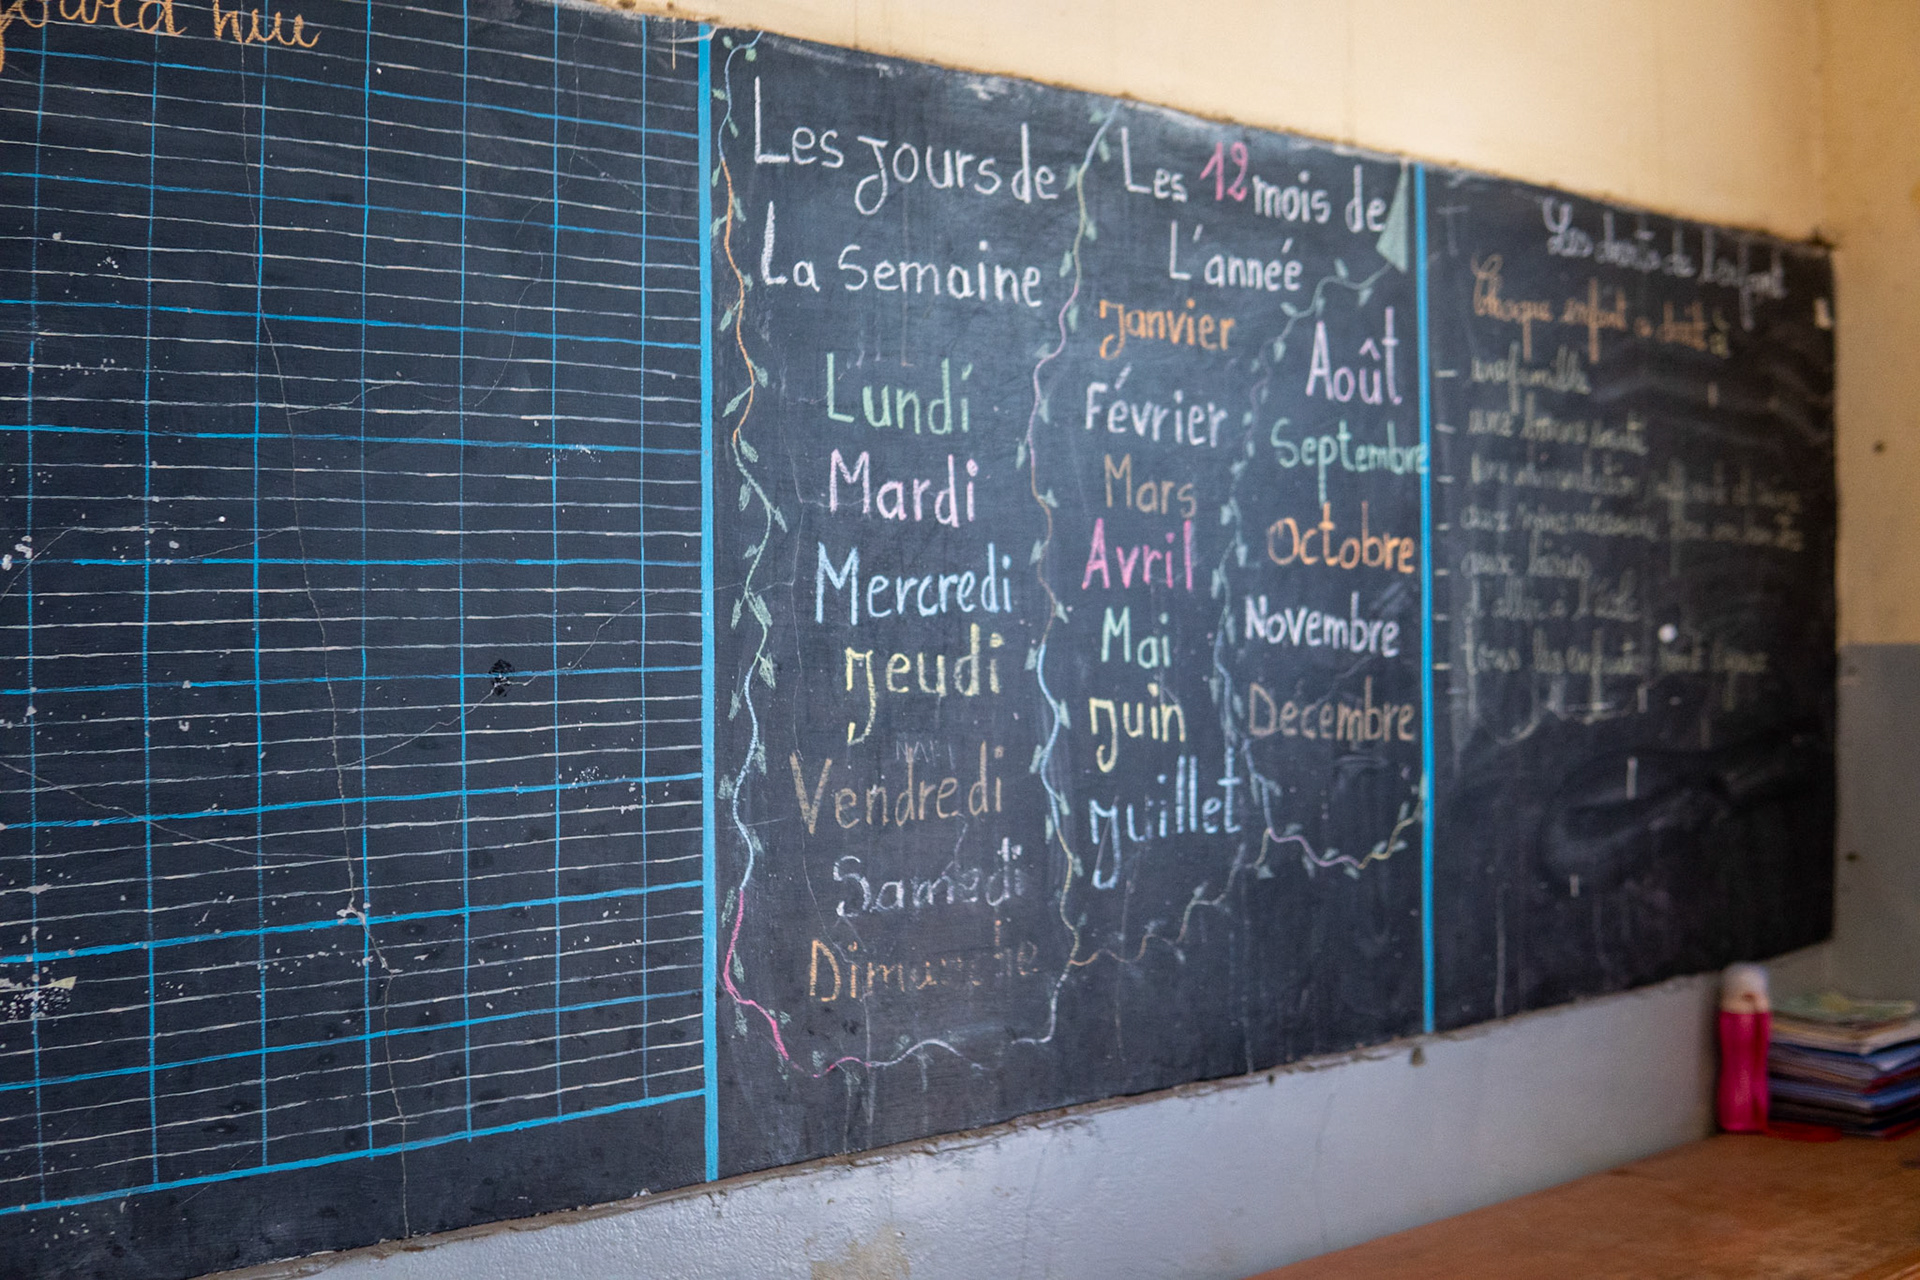 jourd'hui
Les jours de
La Semaine
Lundi
Mardi
Mercredi
jeudi
Vendredi
Samedi
Dimanche
Les 12 mois de
L'année
janvier
Février
Mars
Avril
Mai
juin
juillet
Août
Septembre
Octobre
Novembre
Décembre
Les droits de l'enfant
Chaque enfant a droit à
- une famille
- une bonne santé
aux loisirs
- d'aller à l'école
- tous les enfants sont égaux